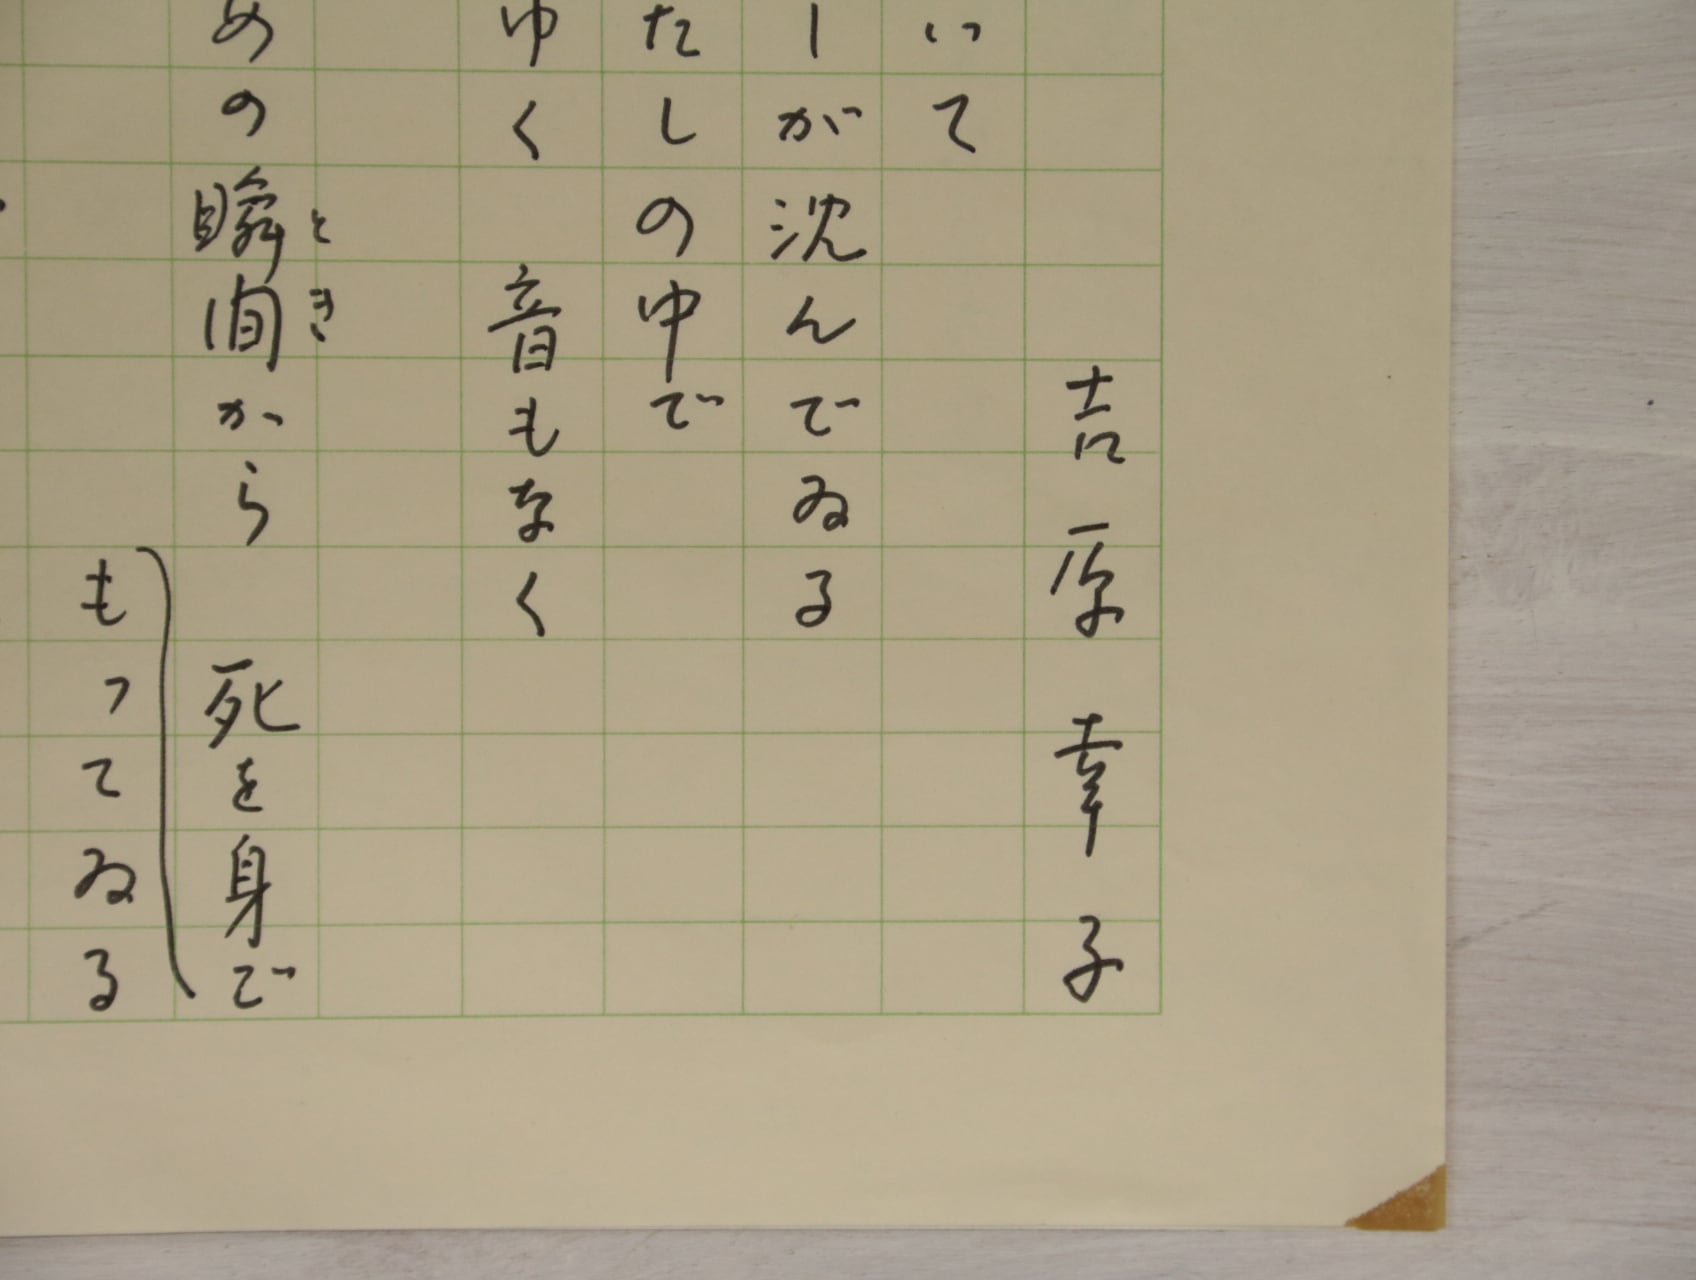 吉原幸子
いて
ーが沈んでゐる
たしの中で
ゆく　音もなく
めの瞬間から　死を身で
とき
もってゐる